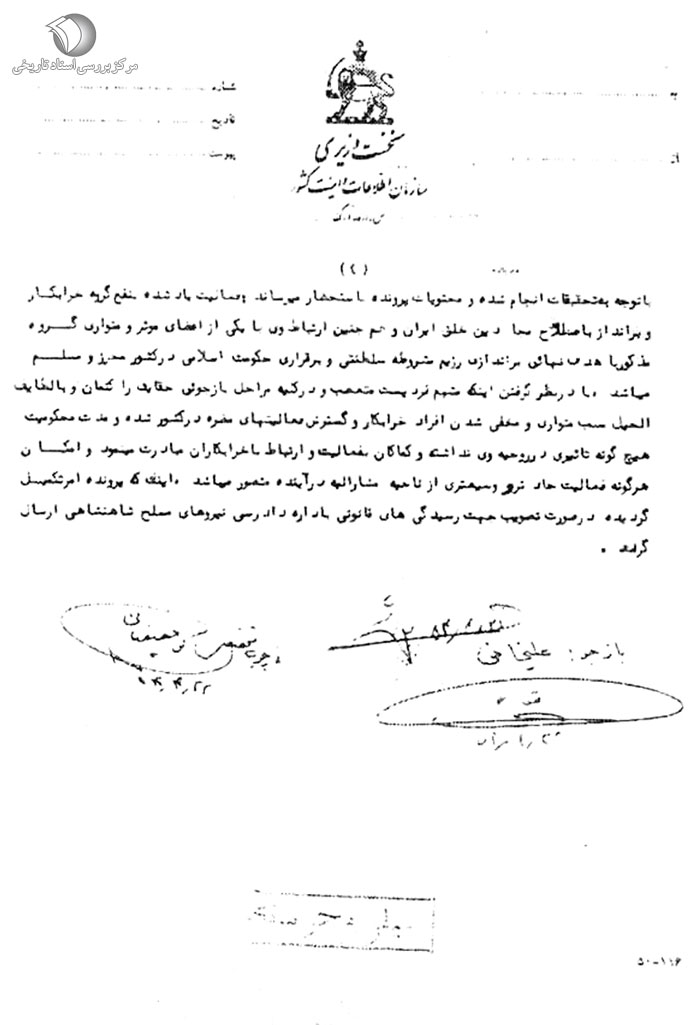 مرکز بررسی اسناد تاریخی
شماره
به
تاریخ
از
پیوست
نخست وزیری
سازمان اطلاعات و امنیت کشور
س.ا.و.ا.ک
(۲)
باتوجه به تحقیقات انجام شده و محتویات پرونده باستحضار میرساند : فعالیت یاد شده بنفع گروه خرابکار
و برانداز باصطلاح مجاهدین خلق ایران و هم چنین ارتباط وی با یکی از اعضای موثر و متواری گروه
مذکور با هدف نهائی براندازی رژیم مشروطه سلطنتی و برقراری حکومت اسلامی در کشور محرز و مسلم
میباشد . با در نظر گرفتن اینکه متهم فردیست متعصب و در کلیه مراحل بازجوئی حقایق را کتمان و بالطایف
الحیل سبب متواری و مخفی شدن افراد خرابکار و گسترش فعالیتهای مضره در کشور شده و مدت محکومیت
هیچ گونه تاثیری در روحیه وی نداشته و کماکان بفعالیت و ارتباط با خرابکاران مبادرت مینمود و امکان
هرگونه فعالیت حاد تر و وسیعتری از ناحیه مشارالیه در آینده متصور میباشد . اینک که پرونده امر تکمیل
گردیده در صورت تصویب جهت رسیدگی های قانونی باداره دادرسی نیروهای مسلح شاهنشاهی ارسال
گردد .
بازجو :
۵۰-۱۱۶